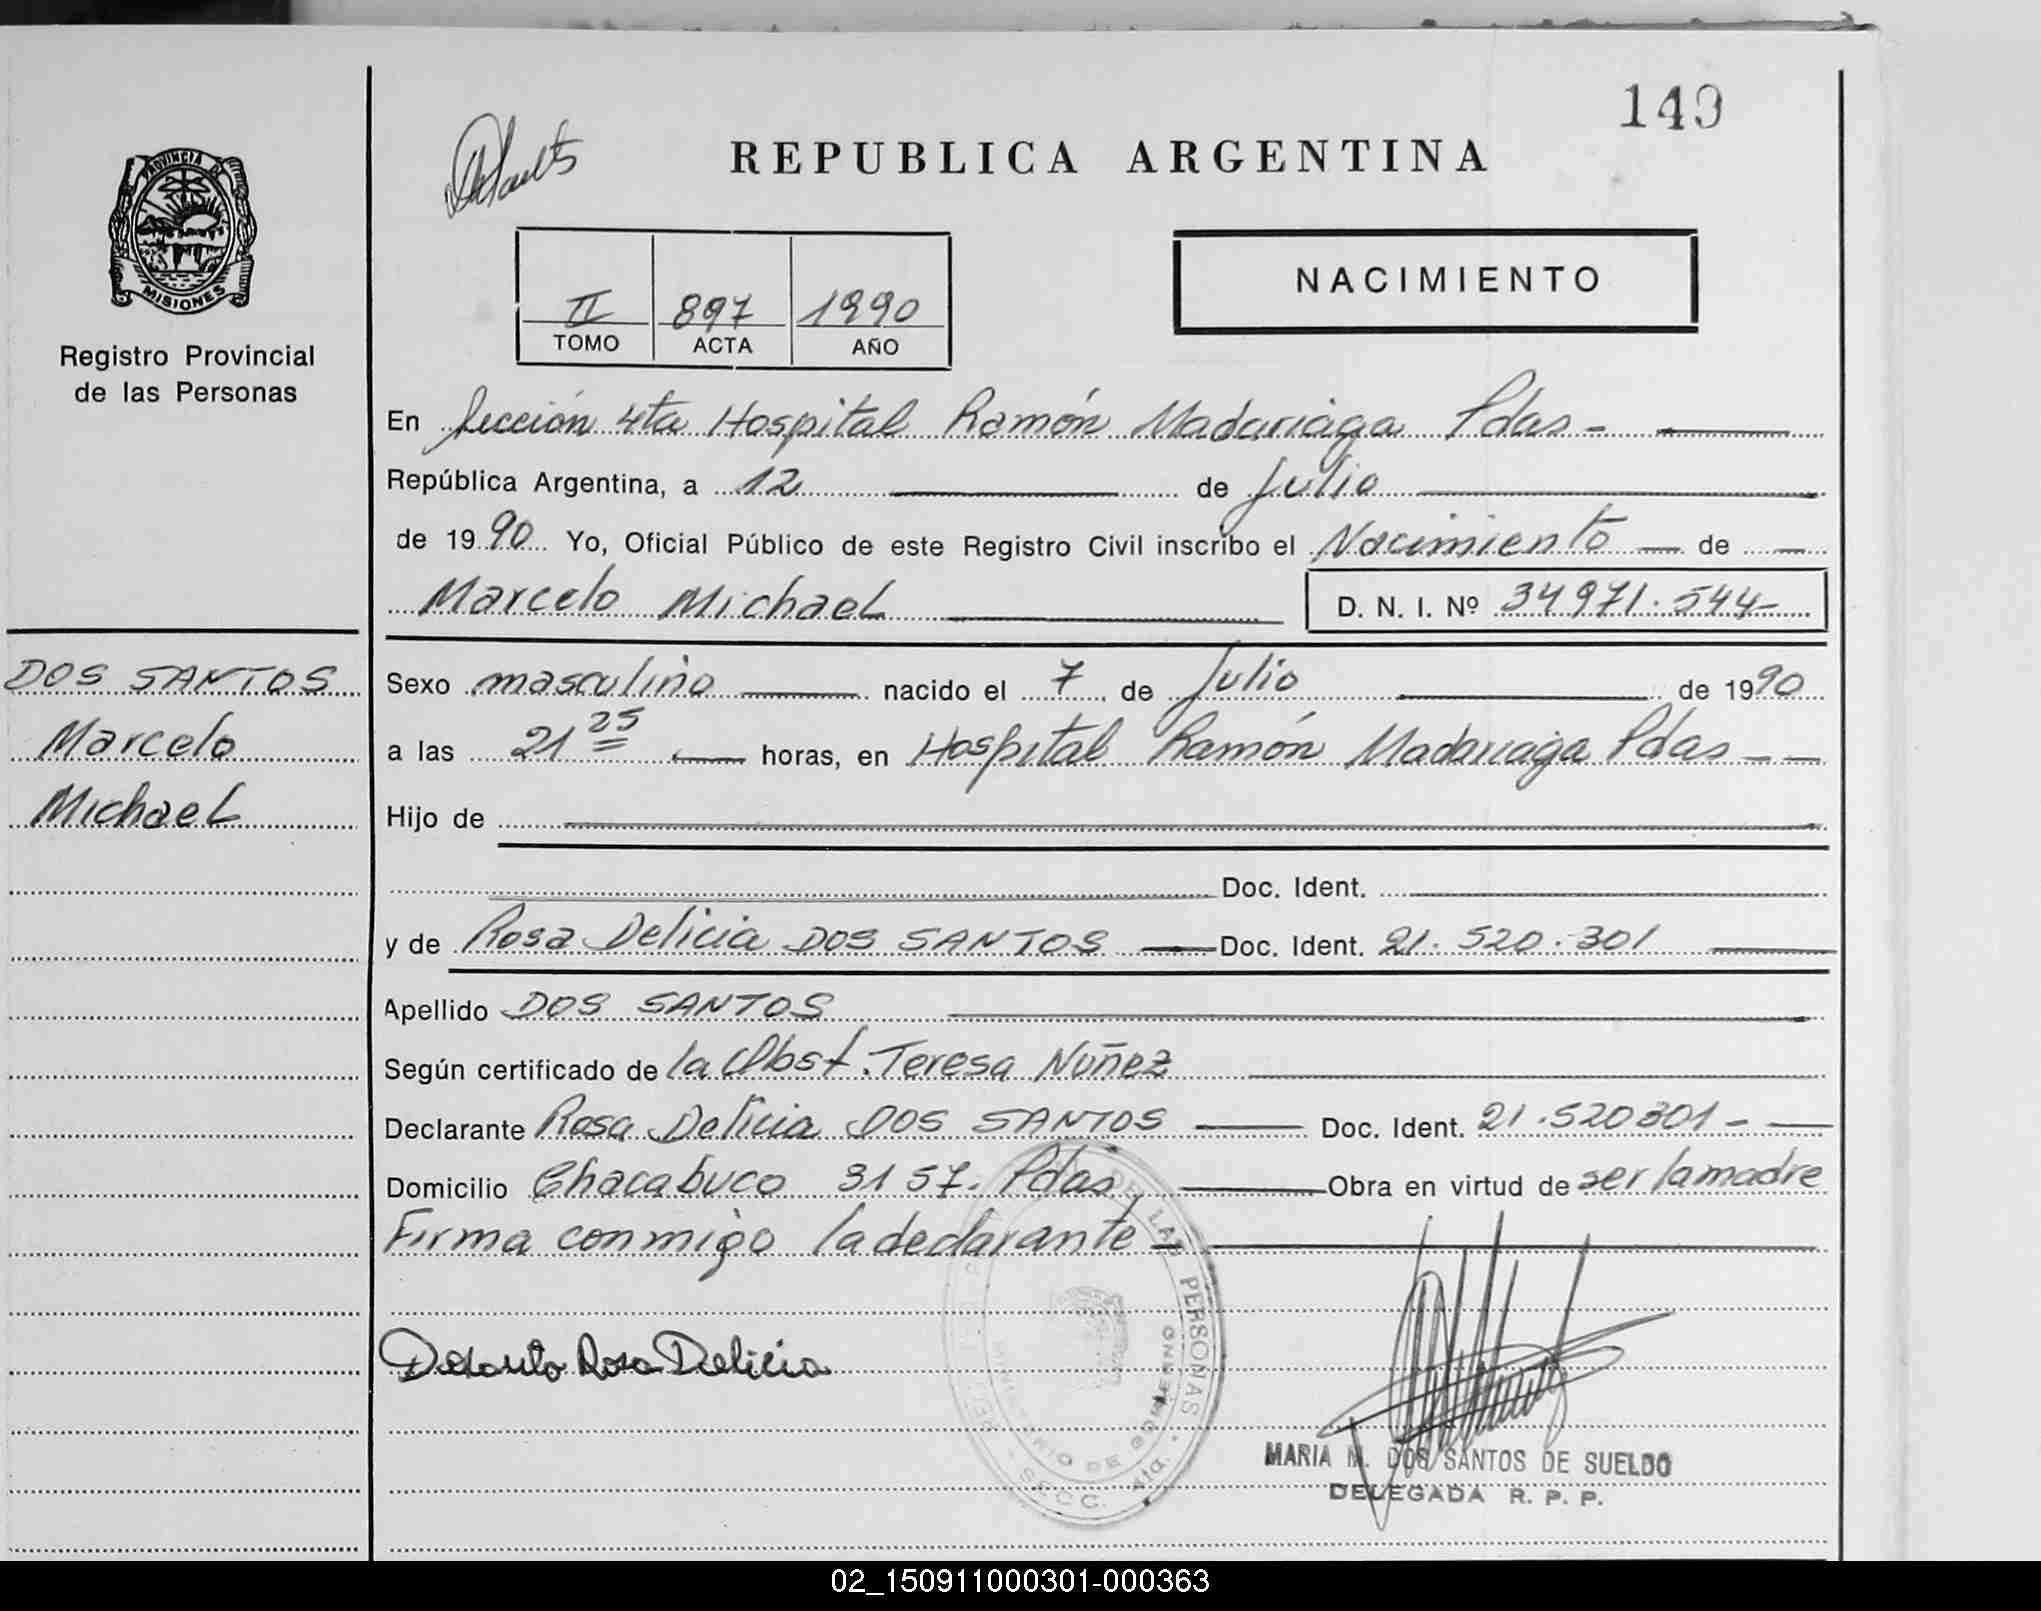 149
REPUBLICA ARGENTINA
PROVINCIA DE
MISIONES
Registro Provincial
de las Personas
NACIMIENTO
II 897 1990
TOMO ACTA AÑO
En Sección 4ta Hospital Ramón Madariaga Pdas -
República Argentina, a 12 de Julio
de 1990 Yo, Oficial Público de este Registro Civil inscribo el Nacimiento de
Marcelo Michael D. N. I. Nº 34971.544-
DOS SANTOS
Marcelo
Michael
Sexo masculino nacido el 7 de Julio de 1990
a las 21 25 horas, en Hospital Ramón Madariaga Pdas
Hijo de
Doc. Ident.
y de Rosa Delicia DOS SANTOS Doc. Ident. 21.520.301
Apellido DOS SANTOS
Según certificado de la Obst. Teresa Nuñez
Declarante Rosa Delicia DOS SANTOS Doc. Ident. 21.520301-
Domicilio Chacabuco 3157. Pdas Obra en virtud de ser la madre
Firma conmigo la declarante
Rosa Delicia
DE LAS PERSONAS
MINISTERIO DE GOBIERNO
SECC. 4ta.
MARIA M. DOS SANTOS DE SUELDO
DELEGADA R. P. P.
02_150911000301-000363